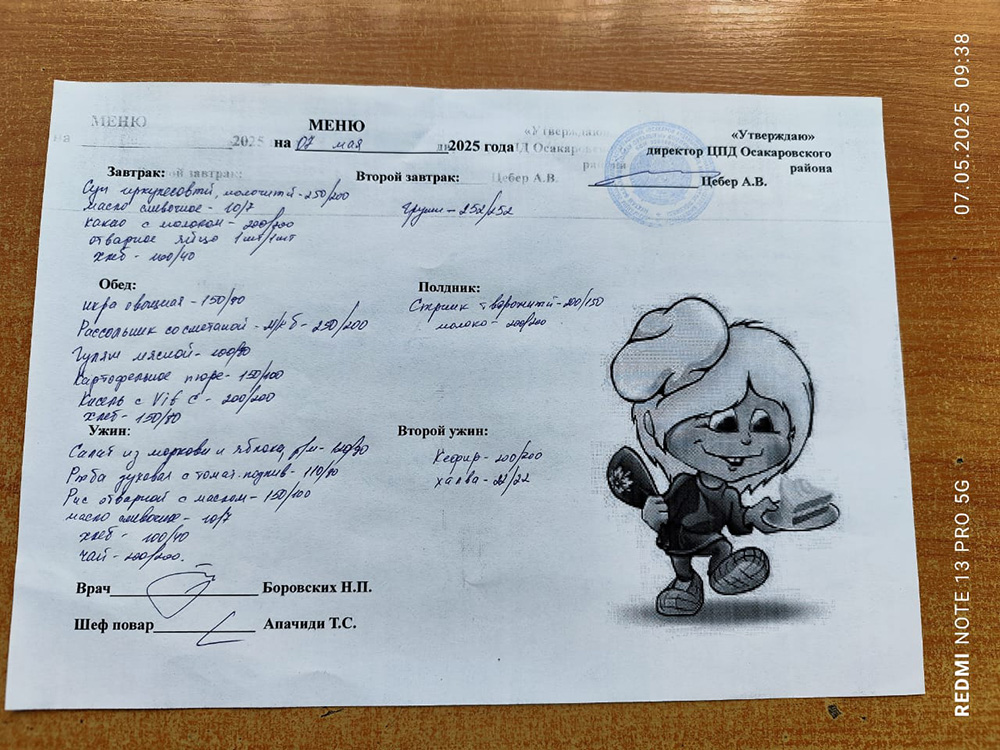 МЕНЮ
на 07 мая 2025 года
«Утверждаю»
директор ЦПД Осакаровского
района
Цебер А.В.
Завтрак:
Суп геркулесовый, молочный - 250/200
масло сливочное - 10/7
какао с молоком - 200/200
отварное яйцо 1шт/1шт
хлеб - 100/40
Второй завтрак:
Груши - 252/252
Обед:
икра овощная - 150/90
Рассольник со сметаной - м/к б - 250/200
Гуляш мясной - 100/80
Картофельное пюре - 150/100
Кисель с Vit C - 200/200
хлеб - 150/80
Полдник:
творожный - 200/150
молоко - 200/200
Ужин:
Салат из моркови и яблока, р/м - 120/90
Рыба духовая с томат. подлив - 110/80
Рис отварной с маслом - 150/100
масло сливочн - 10/7
хлеб - 100/40
чай - 200/200.
Второй ужин:
Кефир - 200/200
халва - 22/22
Врач Боровских Н.П.
Шеф повар Апачиди Т.С.
07.05.2025 09:38
REDMI NOTE 13 PRO 5G